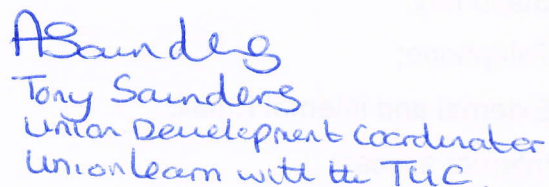 ASaunders
Tony Saunders
Union Development Coordinator
unionlearn with the TUC